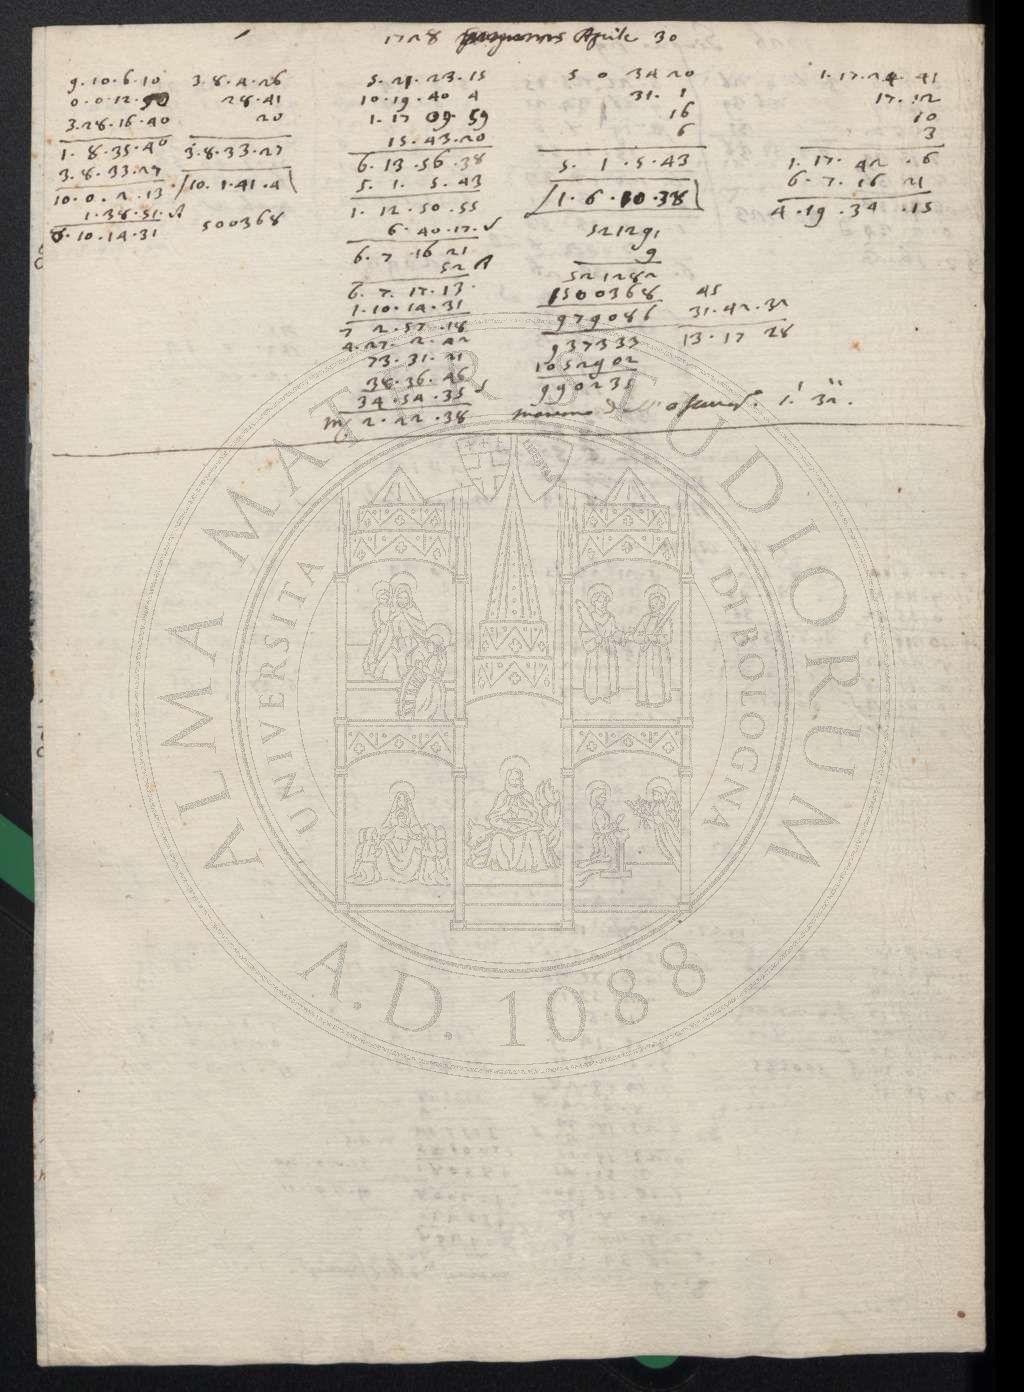 1728 Aprile 30
9.10.6.10
0.0.12.50
3.28.16.40
1.8.35.40
3.8.33.27
10.0.2.13
1.38.51.A
8.10.14.31
3.8.4.26
28.41
20
3.8.33.27
10.1.41.4
500368
5.21.23.15
10.19.40 4
1.17 09.59
15.43.20
6.13.56.38
5.1.5.43
1.12.50.55
6.40.17.S
6.7.16 21
52 A
6.7.17.13.
1.10.14.31
7 2.57.18
4.27.2.42
73.31.21
38.36.46
34.54.35 S
m. 2.22.38
5 0 34 20
31.1
16
6
5.1.5.43
1.6.10.38
521291
9
521282
1500368
979086
937333
1052902
990235
45
31.42.32
13.17 28
1.17.24.41
17.12
10
3
1.17.42.6
6.7.16 21
4.19.34.15
1.' 32."
ALMA MATER STUDIORUM
UNIVERSITA DI BOLOGNA
LIBERTAS
A.D. 1088